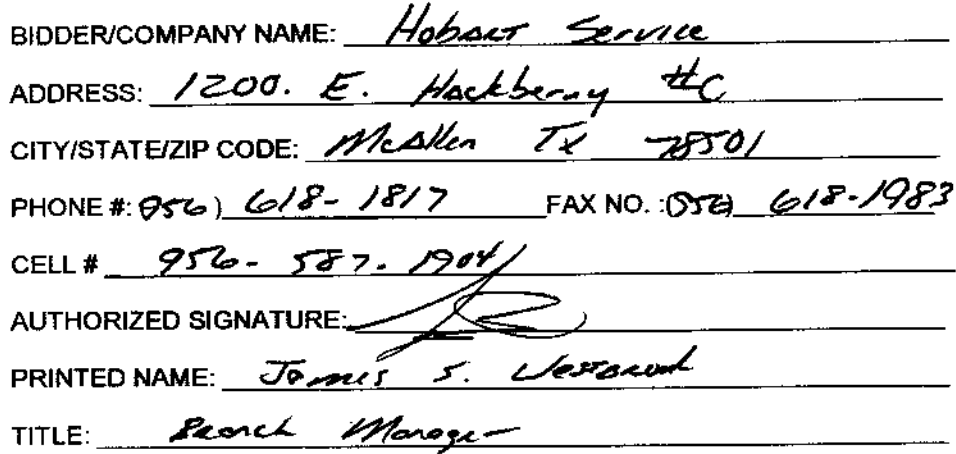 BIDDER/COMPANY NAME: Hobart Service
ADDRESS: 1200. E. Hackberry #C
CITY/STATE/ZIP CODE: McAllen Tx 78501
PHONE #: 956) 618-1817 FAX NO. :(956) 618-1983
CELL # 956- 587- 1904
AUTHORIZED SIGNATURE:
PRINTED NAME: James S. Westbrook
TITLE: Branch Manager